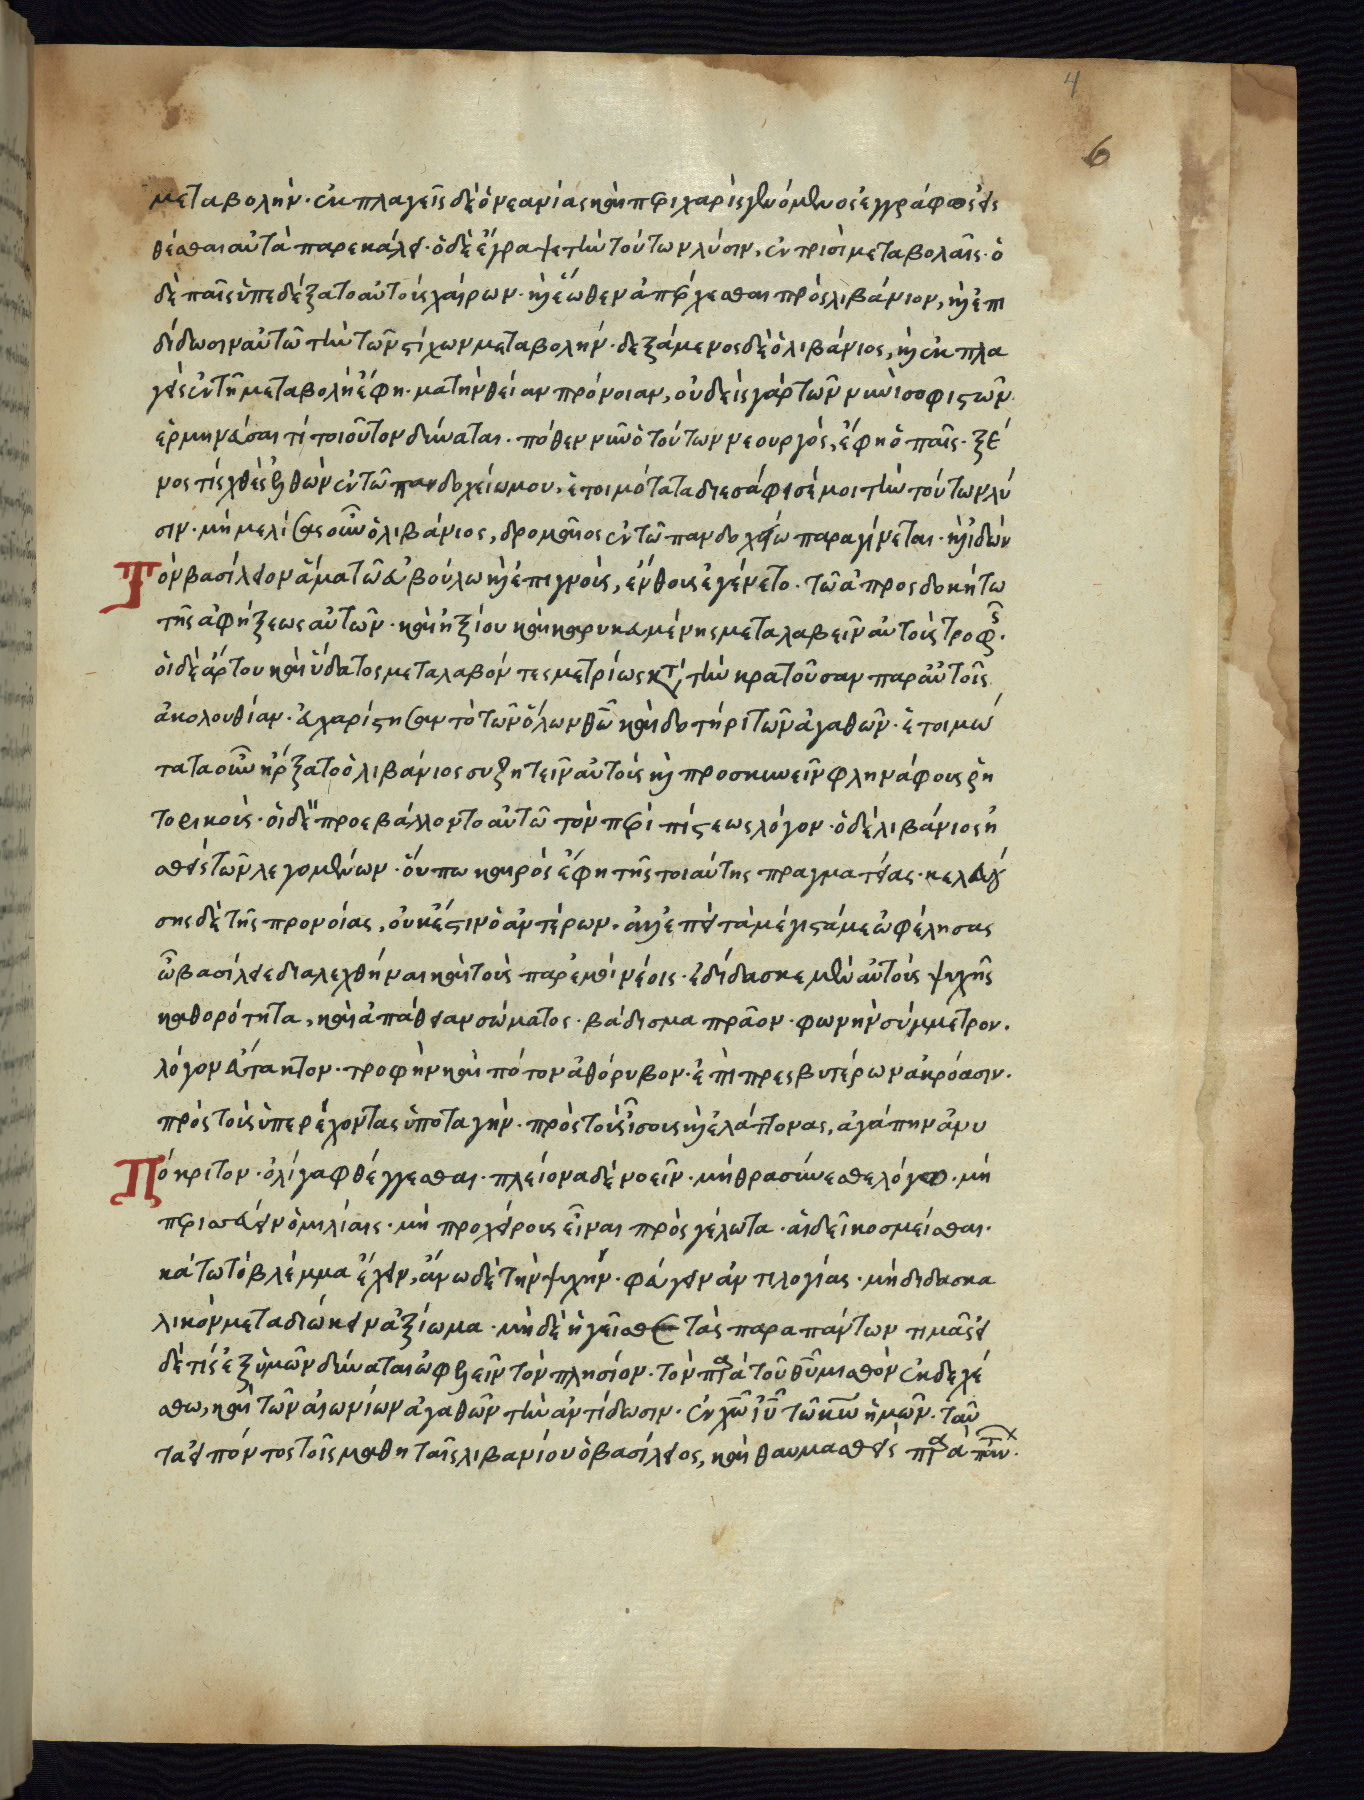 4
6
μεταβολήν· ἐκπλαγεὶς δὲ ὁ νεανίας καὶ περιχαρὴς γενόμενος ἐγγράφως ἐκ
θέσθαι αὐτὰ παρεκάλει· ὁ δὲ ἔγραψε τὴν τούτων λύσιν, ἐν τρισὶ μεταβολαῖς· ὁ
δὲ παῖς ὑπεδέξατο αὐτοὺς χαίρων· καὶ ἕωθεν ἀπέρχεσθαι πρὸς λιβάνιον, καὶ ἐπι
δίδωσιν αὐτῶ τὴν τῶν στίχων μεταβολήν· δεξάμενος δὲ ὁ λιβάνιος, καὶ ἐκπλα
γεὶς ἐν τῇ μεταβολῇ ἔφη· μὰ τὴν θείαν πρόνοιαν, οὐδεὶς γὰρ τῶν νυνὶ σοφιστῶν
ἑρμηνεῦσαι τί τοιοῦτον δύναται· πόθεν νῦν ὁ τούτων νεουργὸς, ἔφη ὁ παῖς· ξέ
νος τίς χθὲς ἐλθὼν ἐν τῶ πανδοχείω μου, ἑτοιμότατα διεσάφησέ μοι τὴν τούτων λύ
σιν· μὴ μελήσας οὖν ὁ λιβάνιος, δρομαῖος ἐν τῶ πανδοχείω παραγίνεται· καὶ ἰδὼν
Τὸν βασίλειον ἅμα τῶ εὐβούλω καὶ ἐπιγνοὺς, ἔνθους ἐγένετο· τῶ ἀπροσδοκήτω
τῆς ἀφήξεως αὐτῶν· καὶ ἠξίου καὶ καρυκευμένης μεταλαβεῖν αὐτοὺς τροφῆς·
οἱ δὲ ἄρτου καὶ ὕδατος μεταλαβόντες μετρίως κατὰ τὴν κρατοῦσαν παρ' αὐτοῖς
ἀκολουθίαν· εὐχαρίστησαν τὸ τῶν ὅλων θεῶ καὶ δοτήρι τῶν ἀγαθῶν· ἑτοιμώ
τατα οὖν ἤρξατο ὁ λιβάνιος συζητεῖν αὐτοὺς καὶ προσκινεῖν φληνάφους ῥη
τορικούς· οἱ δὲ προεβάλλοντο αὐτῶ τὸν περὶ πίστεως λόγον· ὁ δὲ λιβάνιος ἡ
σθεὶς τῶν λεγομένων· οὔπω καιρὸς ἔφη τῆς τοιαύτης πραγματείας· κελευού
σης δὲ τῆς προνοίας, οὐκ ἔστιν ὁ ἀντέρων· ἀλλ' ἐπεὶ τὰ μέγιστά με ὠφέλησας
ὦ βασίλειε διαλεχθῆναι καὶ τοὺς παρ' ἐμοὶ νέοις· ἐδίδασκε μὲν αὐτοὺς ψυχῆς
καθαρότητα, καὶ ἀπάθειαν σώματος· βάδισμα πρᾶον· φωνὴν σύμμετρον·
λόγον εὔτακτον· τροφὴν καὶ πότον ἀθόρυβον· ἐπὶ πρεσβυτέρων ἀκρόασιν·
πρὸς τοὺς ὑπερέχοντας ὑποταγήν· πρὸς τοὺς ἴσους καὶ ἐλάττονας, ἀγάπην ἀνυ
Πόκριτον· ὀλίγα φθέγγεσθαι· πλείονα δὲ νοεῖν· μὴ θρασύνεσθε λόγω· μὴ
περισσεύειν ὁμιλίαις· μὴ προχείρους εἶναι πρὸς γέλωτα· αἰδεῖ κοσμεῖσθαι·
κάτω τὸ βλέμμα ἔχειν, ἄνω δὲ τὴν ψυχήν· φεύγειν ἀντιλογίας· μὴ διδασκα
λικὸν μεταδιώκειν ἀξίωμα· μὴ δὲ ἡγεῖσθε τὰς παρὰ πάντων τιμάς· εἰ
δέ τις ἐξ ὑμῶν δύναται ὠφελεῖν τὸν πλησίον· τὸν παρὰ τοῦ θεοῦ μισθὸν ἐκδεχέ
σθω, καὶ τῶν αἰωνίων ἀγαθῶν τὴν ἀντίδωσιν· ἐν χῶ ἰυ τῶ κω ἡμῶν· ταῦ
τα εἰπόντος τοῖς μαθηταῖς λιβανίου ὁ βασίλειος, καὶ θαυμασθεὶς παρὰ πάντων·